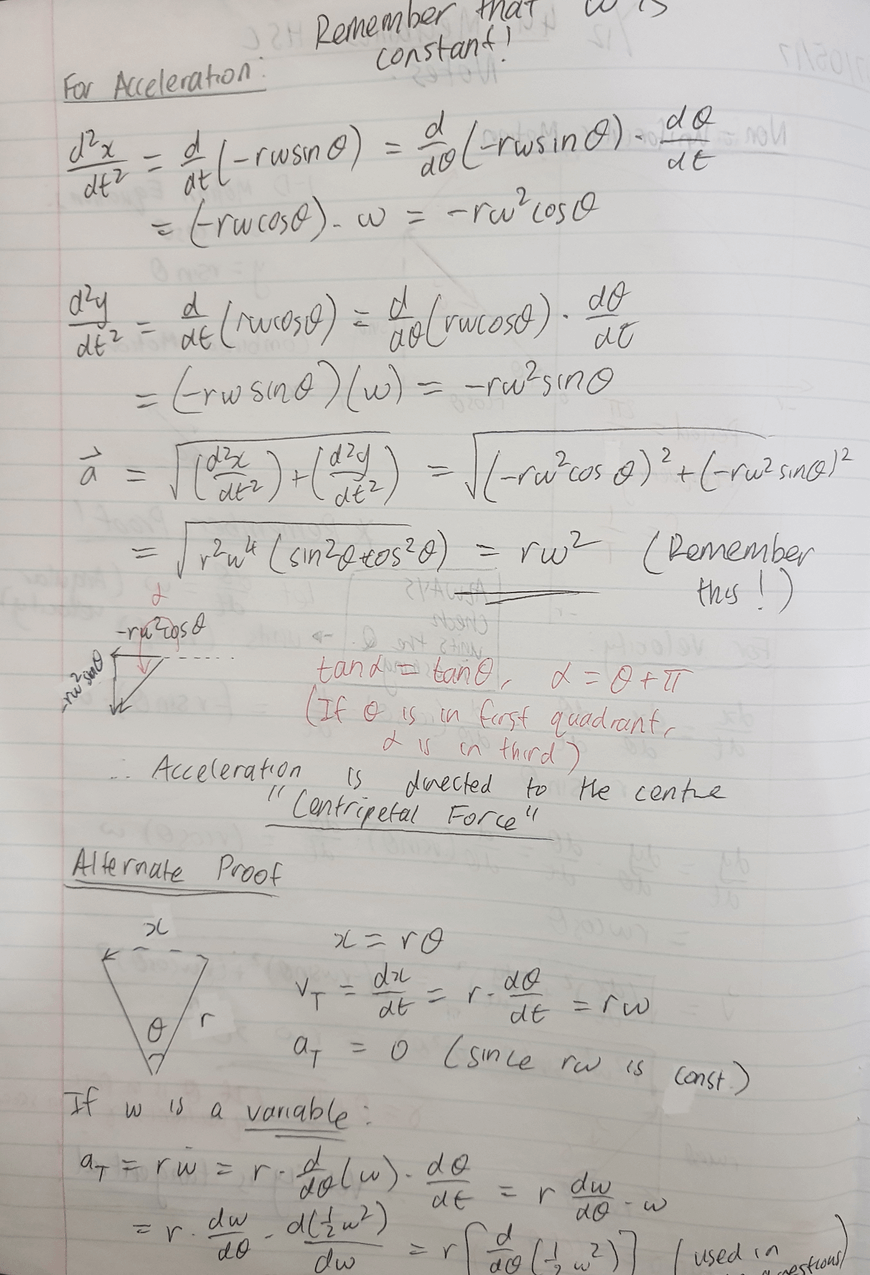 Remember that ω is
constant!
For Acceleration:
d²x/dt² = d/dt(-rωsinθ) = d/dθ(-rωsinθ) · dθ/dt
= (-rωcosθ) · ω = -rω²cosθ
d²y/dt² = d/dt(rωcosθ) = d/dθ(rωcosθ) · dθ/dt
= (-rωsinθ)(ω) = -rω²sinθ
a⃗ = √((d²x/dt²)+(d²y/dt²)) = √((-rω²cosθ)²+(-rω²sinθ)²)
= √(r²ω⁴(sin²θ+cos²θ)) = rω² (Remember
this!)
α
-rω²cosθ
-rω²sinθ
tanα = tanθ, α = θ + π
(If θ is in first quadrant,
α is in third)
∴ Acceleration is directed to the centre
"Centripetal Force"
Alternate Proof
x
θ
r
x = rθ
v_T = dx/dt = r · dθ/dt = rω
a_T = 0 (since rω is const)
If ω is a variable:
a_T = rω̇ = r · d/dθ(ω) · dθ/dt = r dω/dθ · ω
= r · dω/dθ · d(½ω²)/dω = r[d/dθ(½ω²)] (used in